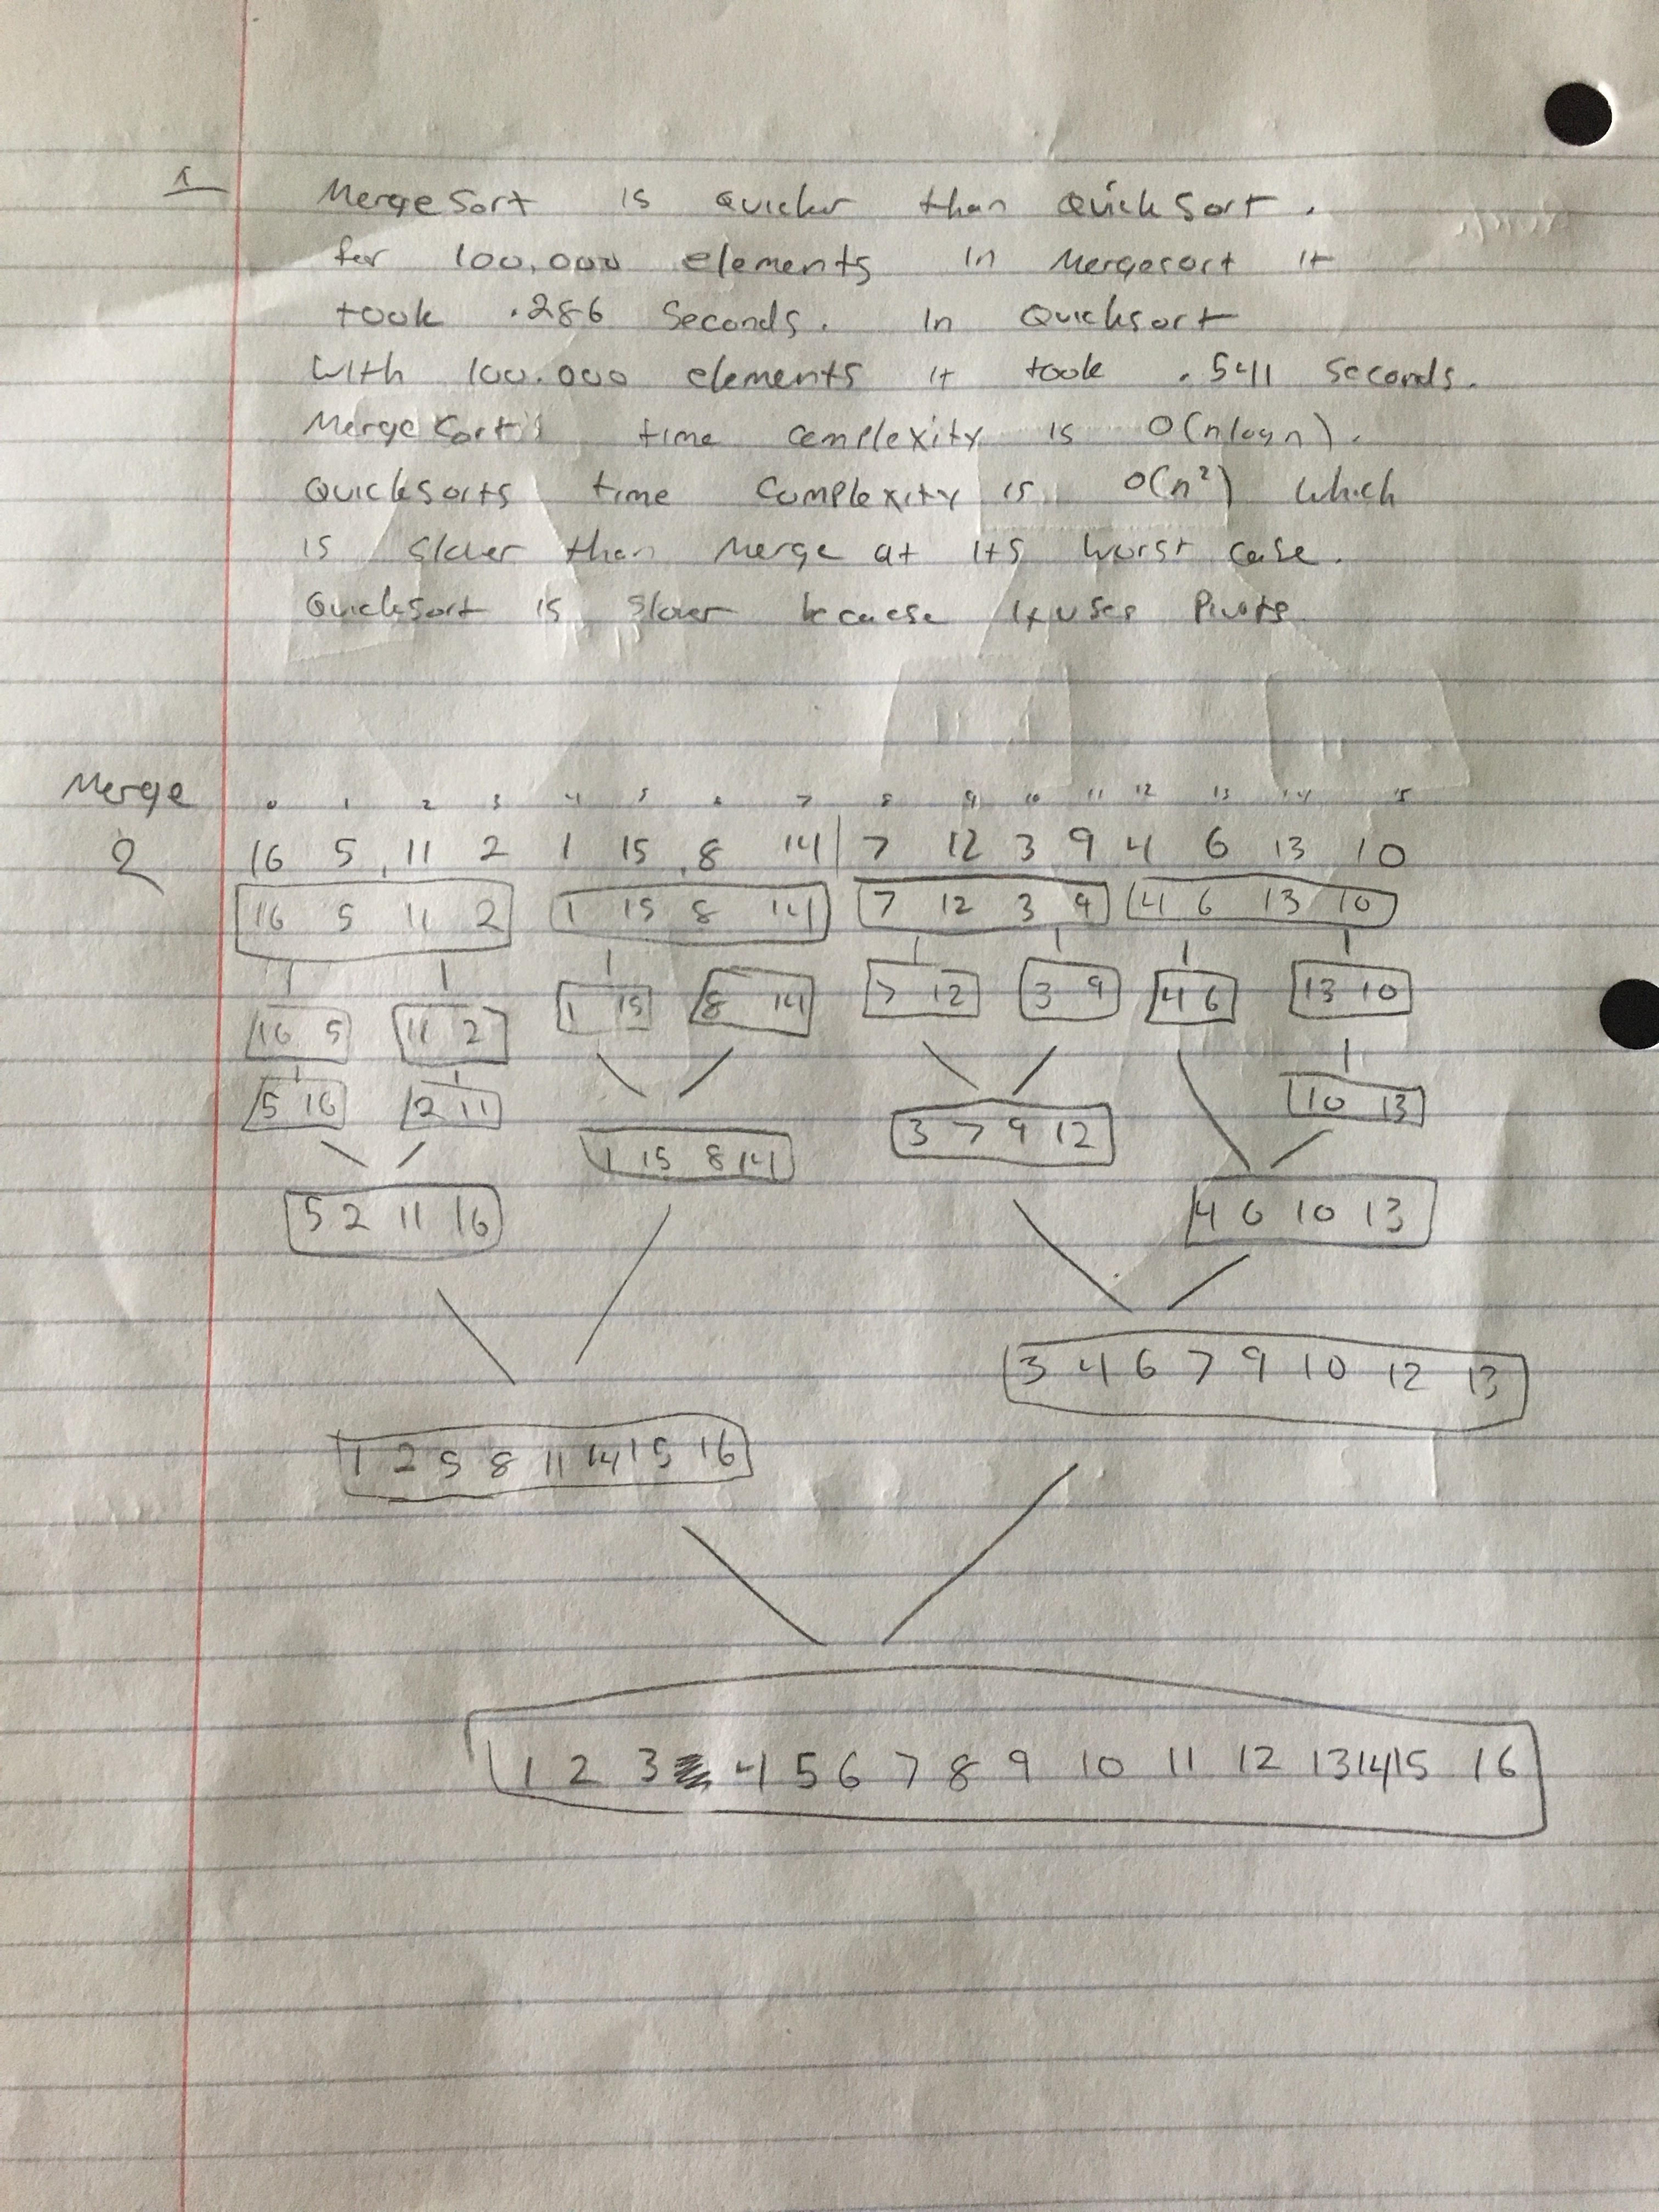 1 MergeSort is Quicker than QuickSort.
for 100,000 elements in Mergesort it
took .286 Seconds. In Quicksort
with 100.000 elements it took .541 seconds.
MergeSort's time complexity is O(nlogn).
Quicksorts time complexity is O(n²) which
is slower than Merge at its worst case.
Quicksort is slower because it uses Pivots
Merge 0 1 2 3 4 5 6 7 8 9 10 11 12 13 14 15
2 16 5, 11 2 1 15, 8 14 | 7 12 3 9 4 6 13 10
16 5 11 2 1 15 8 14 7 12 3 9 4 6 13 10
16 5 11 2 1 15 8 14 7 12 3 9 4 6 13 10
5 16 2 11 10 13
1 15 8 14 3 7 9 12
5 2 11 16 4 6 10 13
3 4 6 7 9 10 12 13
1 2 5 8 11 14 15 16
1 2 3 4 5 6 7 8 9 10 11 12 13 14 15 16